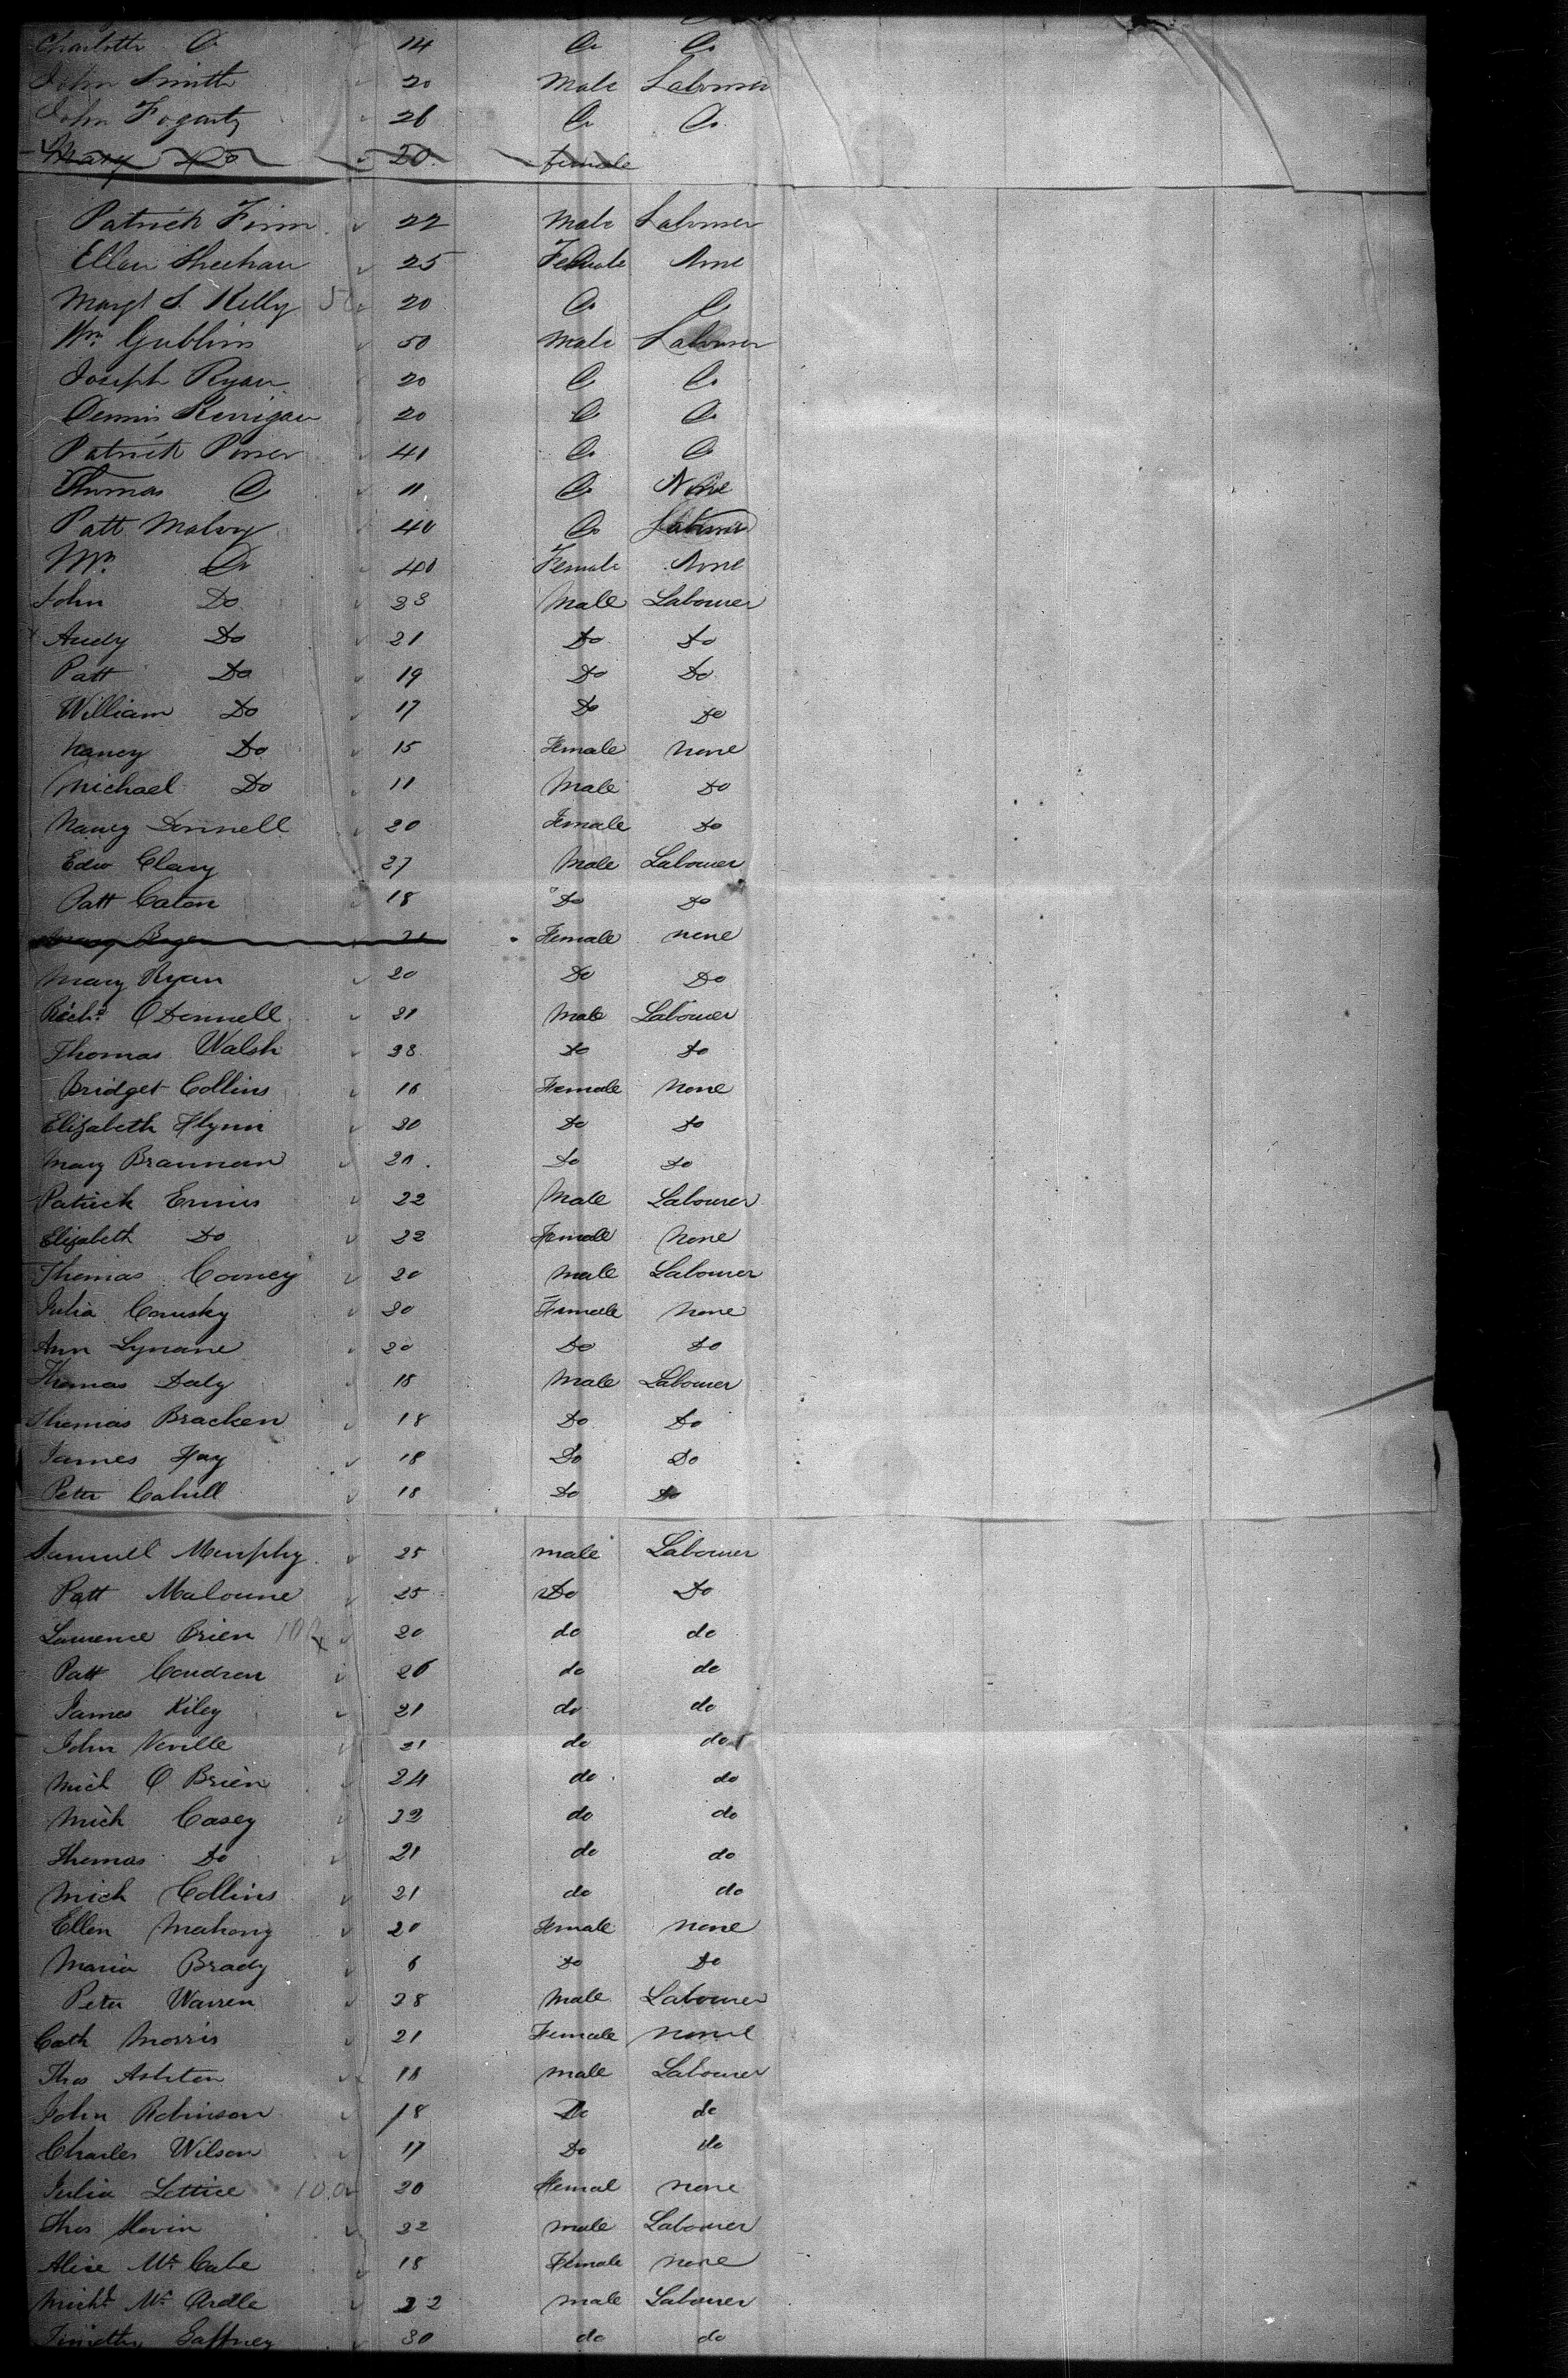 Charlotte Do 14 Do Do
John Smith 20 Male Labourer
John Fogarty 26 Do Do
Mary Do 20 female
Patrick Finn 22 Male Labourer
Ellen Sheehan 25 Female None
Margt S. Kelly 50 20 Do Do
Wm Gubbins 50 Male Labourer
Joseph Ryan 20 Do Do
Dennis Kerrigan 20 Do Do
Patrick Power 41 Do Do
Thomas Do 11 Do None
Patt Maloy 40 Do Labourer
Mrs Do 40 Female None
John Do 23 Male Labourer
Andy Do 21 Do Do
Patt Do 19 Do Do
William Do 17 Do Do
Nancy Do 15 Female none
Michael Do 11 Male Do
Nancy Donnell 20 Female Do
Edw Clary 27 Male Labourer
Patt Caton 18 Do Do
21 Female none
Mary Ryan 20 Do Do
Richd O Donnell 21 Male Labourer
Thomas Walsh 23 Do Do
Bridget Collins 18 Female None
Elizabeth Flynn 20 Do Do
Mary Brannan 20 Do Do
Patrick Ennis 22 Male Labourer
Elizabeth Do 22 Female None
Thomas Cooney 20 male Labourer
Julia 20 Female None
Ann Lynane 20 Do Do
Thomas Daly 18 Male Labourer
Thomas Bracken 18 Do Do
James Hay 18 Do Do
Peter Cahill 18 Do Do
Samuell Murphy 25 male Labourer
Patt Maloune 25 Do Do
Laurence Brien 100 20 do do
Patt Condron 26 do do
James Kiley 21 do do
John Neville 21 do do
Mich O Brien 24 do do
Mich Casey 22 do do
Thomas Do 21 do do
Mich Collins 21 do do
Ellen Mahony 20 Female none
Maria Brady 6 Do Do
Peter Warren 28 Male Labourer
Cath Morris 21 Female none
Thos Ashton 18 male Labourer
John Robinson 18 Do do
Charles Wilson 17 Do do
Julia Lettice 100 20 Femal none
Thos Slevin 22 male Labourer
Alice Mc Cabe 18 Female none
Michl Mc Ardle 22 male Labourer
Timothy Gaffney 30 do do